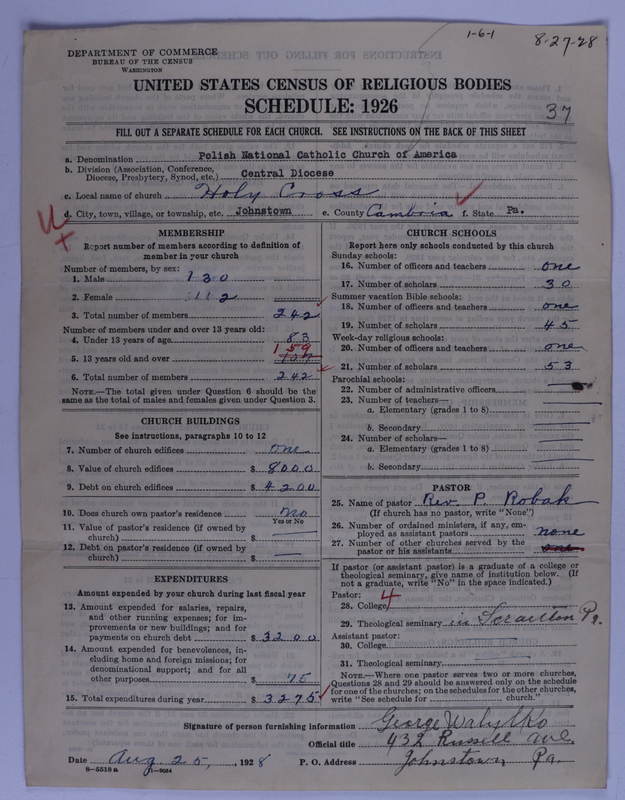 1-6-1
8-27-28
DEPARTMENT OF COMMERCE
BUREAU OF THE CENSUS
WASHINGTON
UNITED STATES CENSUS OF RELIGIOUS BODIES
SCHEDULE: 1926
37
FILL OUT A SEPARATE SCHEDULE FOR EACH CHURCH. SEE INSTRUCTIONS ON THE BACK OF THIS SHEET
a. Denomination Polish National Catholic Church of America
b. Division (Association, Conference, Diocese, Presbytery, Synod, etc.) Central Diocese
c. Local name of church Holy Cross
d. City, town, village, or township, etc. Johnstown e. County Cambria f. State Pa.
MEMBERSHIP
Report number of members according to definition of
member in your church
Number of members, by sex:
1. Male 130
2. Female 112
3. Total number of members 242
Number of members under and over 13 years old:
4. Under 13 years of age 83
159
5. 13 years old and over
6. Total number of members 242
NOTE.—The total given under Question 6 should be the
same as the total of males and females given under Question 3.
CHURCH BUILDINGS
See instructions, paragraphs 10 to 12
7. Number of church edifices one
8. Value of church edifices $ 8000
9. Debt on church edifices $ 4200
10. Does church own pastor's residence No
Yes or No
11. Value of pastor's residence (if owned by
church) $ —
12. Debt on pastor's residence (if owned by
church) $ —
EXPENDITURES
Amount expended by your church during last fiscal year
13. Amount expended for salaries, repairs,
and other running expenses; for im-
provements or new buildings; and for
payments on church debt $ 3200
14. Amount expended for benevolences, in-
cluding home and foreign missions; for
denominational support; and for all
other purposes $ 75
15. Total expenditures during year $ 3275
CHURCH SCHOOLS
Report here only schools conducted by this church
Sunday schools:
16. Number of officers and teachers one
17. Number of scholars 30
Summer vacation Bible schools:
18. Number of officers and teachers one
19. Number of scholars 45
Week-day religious schools:
20. Number of officers and teachers one
21. Number of scholars 53
Parochial schools:
22. Number of administrative officers
23. Number of teachers—
a. Elementary (grades 1 to 8)
b. Secondary
24. Number of scholars—
a. Elementary (grades 1 to 8)
b. Secondary
PASTOR
25. Name of pastor Rev. P. Robak
(If church has no pastor, write "None")
26. Number of ordained ministers, if any, em-
ployed as assistant pastors none
27. Number of other churches served by the
pastor or his assistants one
If pastor (or assistant pastor) is a graduate of a college or
theological seminary, give name of institution below. (If
not a graduate, write "No" in the space indicated.)
Pastor:
28. College 4
29. Theological seminary in Scranton Pa.
Assistant pastor:
30. College
31. Theological seminary
NOTE.—Where one pastor serves two or more churches,
Questions 28 and 29 should be answered only on the schedule
for one of the churches; on the schedules for the other churches,
write "See schedule for church."
Signature of person furnishing information George
Official title 432 Russell
Date Aug 25, 1928 P. O. Address Johnstown Pa.
8—5518 a 11—9034